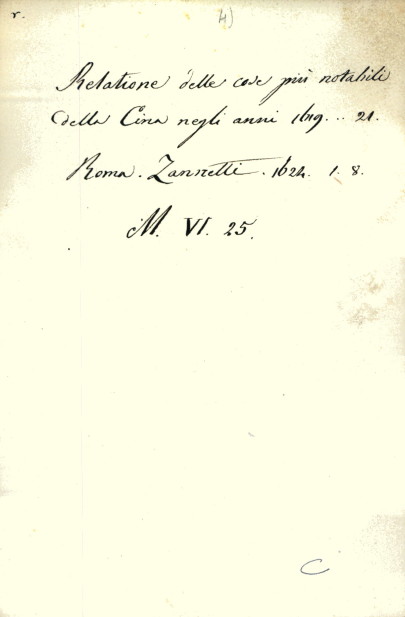 r.
4)
Relatione delle cose più notabili
della Cina negli anni 1619... 21.
Roma. Zannetti. 1624. 1. 8.
M. VI. 25.
C